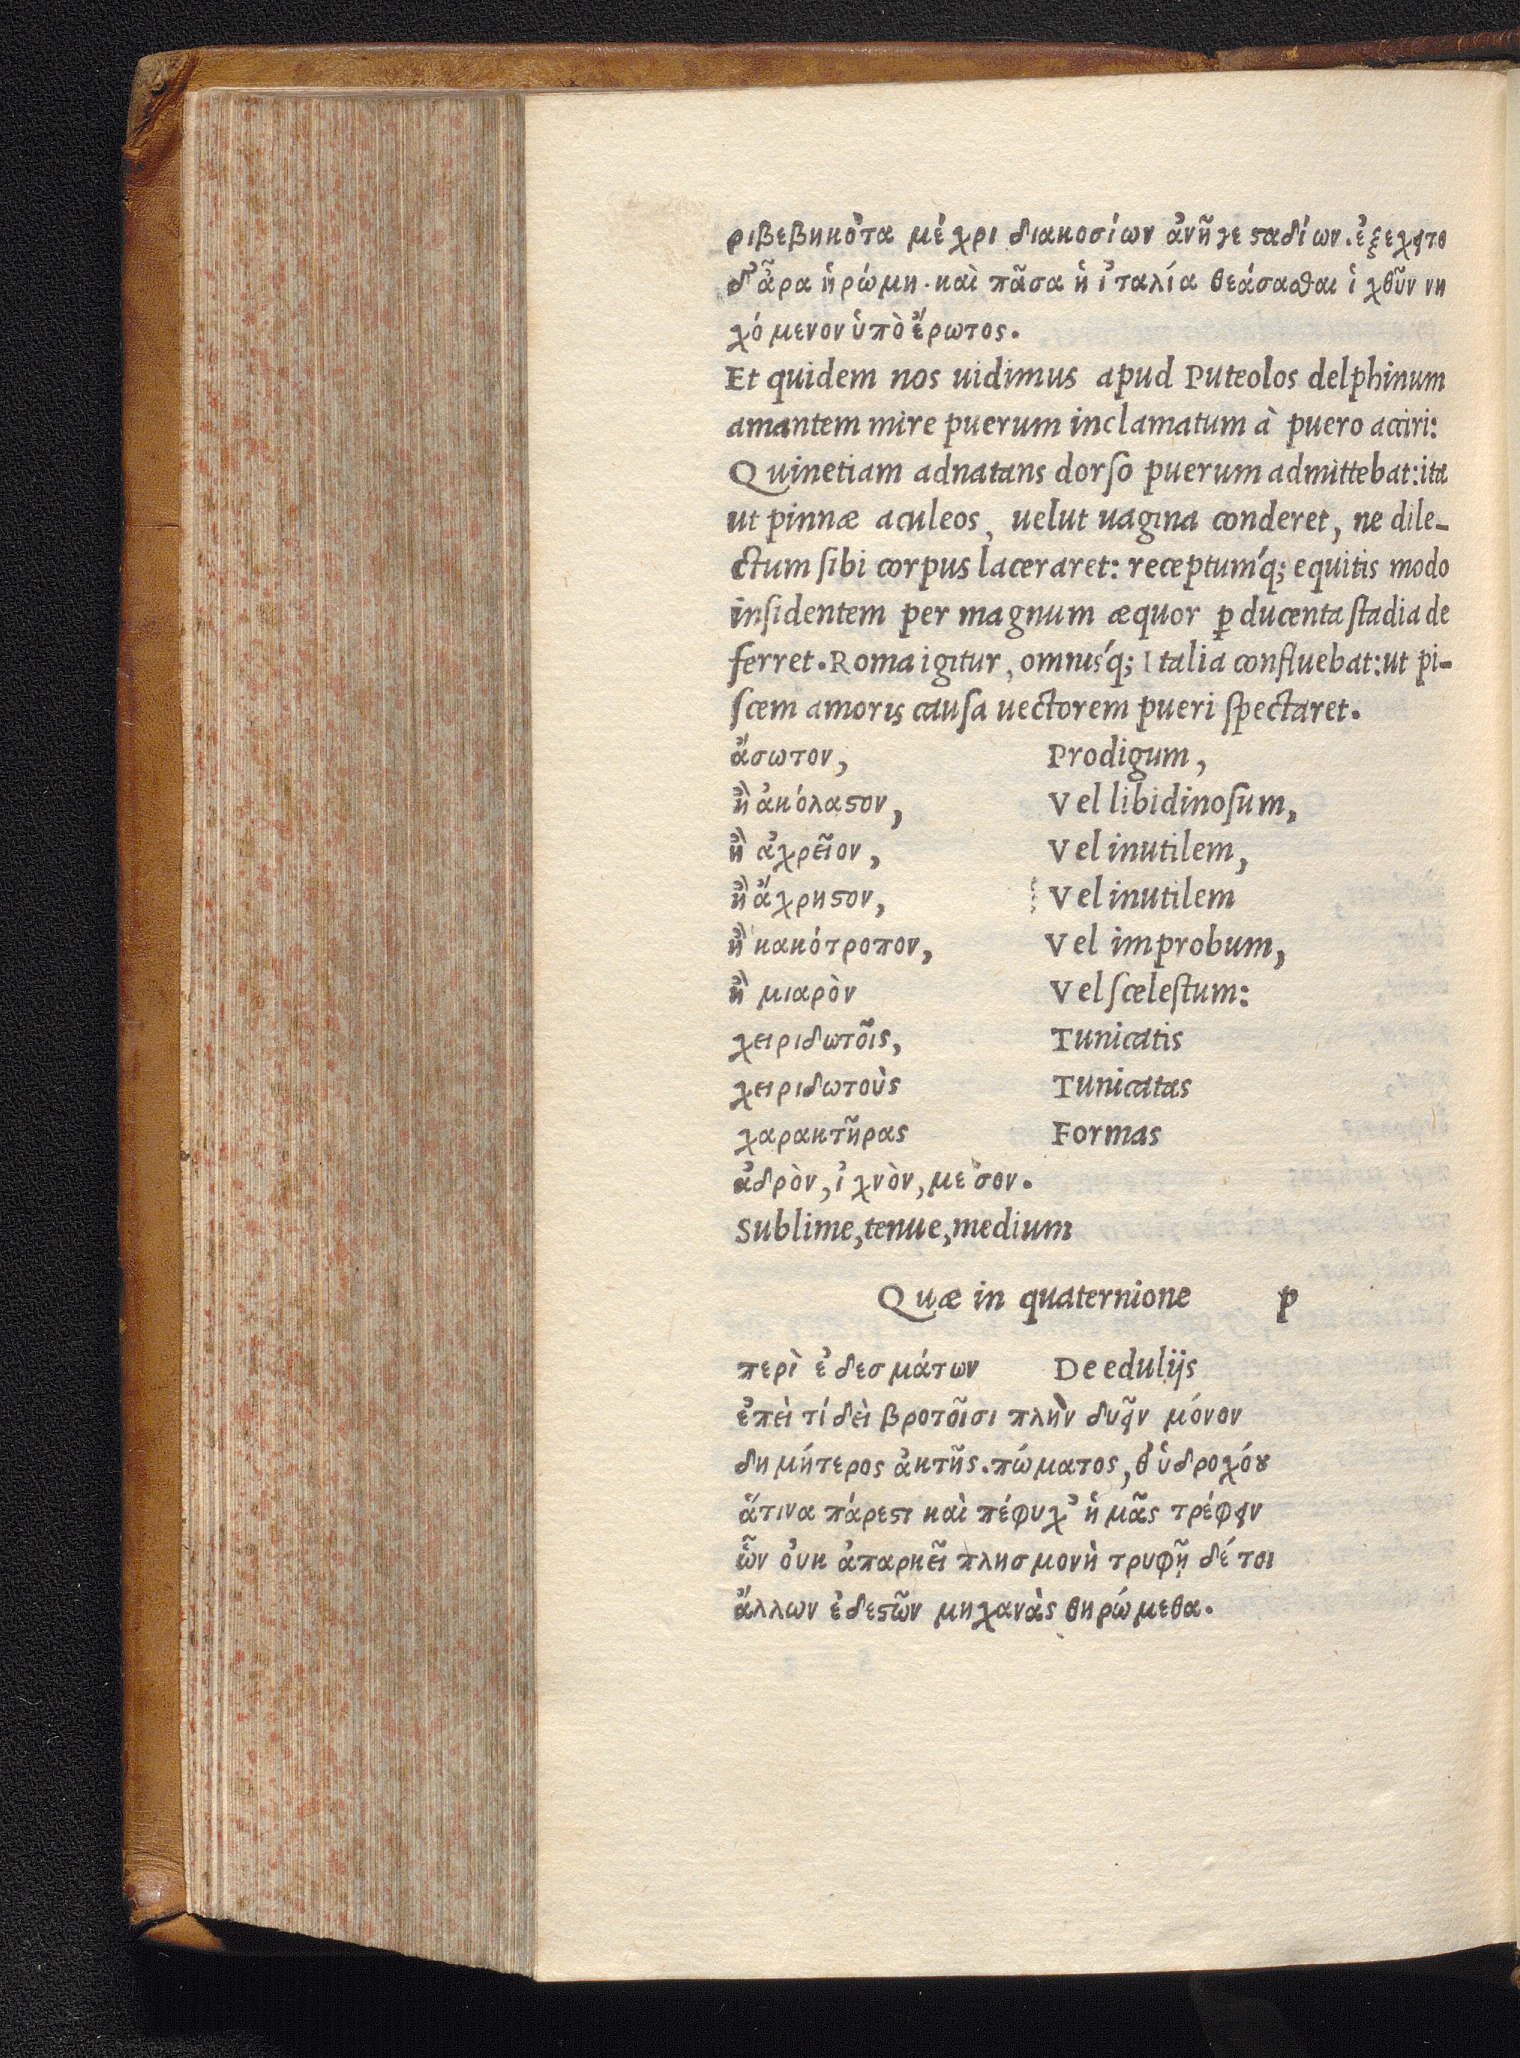 ριβεβηκότα μέχρι διακοσίων ἀνῆγε ϛαδίων. ἐξεχεῖτο
δ' ἆρα ἡ ῥώμη. καὶ πᾶσα ἡ ἰταλία θεάσασθαι ἰχθῦν νη
χόμενον ὑπὸ ἔρωτος.
Et quidem nos uidimus apud Puteolos delphinum
amantem mire puerum inclamatum à puero acciri:
Quinetiam adnatans dorſo puerum admittebat: ita
ut pinnæ aculeos, uelut uagina conderet, ne dile-
ctum ſibi corpus laceraret: receptumq́; equitis modo
inſidentem per magnum æquor ꝑ ducenta ſtadia de
ferret. Roma igitur, omnisq́; Italia confluebat: ut pi-
ſcem amoris cauſa uectorem pueri ſpectaret.
ἄσωτον, Prodigum,
ἢ ἀκόλαϛον, Vel libidinoſum,
ἢ ἀχρεῖον, Vel inutilem,
ἢ ἄχρηϛον, Vel inutilem
ἢ κακότροπον, Vel improbum,
ἢ μιαρὸν Vel ſceleſtum:
χειριδωτοῖς, Tunicatis
χειριδωτοὺς Tunicatas
χαρακτῆρας Formas
ἁδρὸν, ἰχνὸν, μέσον.
Sublime, tenue, medium
Quæ in quaternione p
περὶ ἐδεσμάτων De edulijs
ἐπεὶ τί δεῖ βροτοῖσι πλὴν δυεῖν μόνον
δημήτερος ἀκτῆς. πώματος, θ' ὑδροχόου
ἅτινα πάρεϛι καὶ πέφυχ' ἡμᾶς τρέφειν
ὧν οὐκ ἀπαρκεῖ πλησμονὴ τρυφῇ δέ τοι
ἄλλων ἐδεϛῶν μηχανὰς θηρώμεθα.